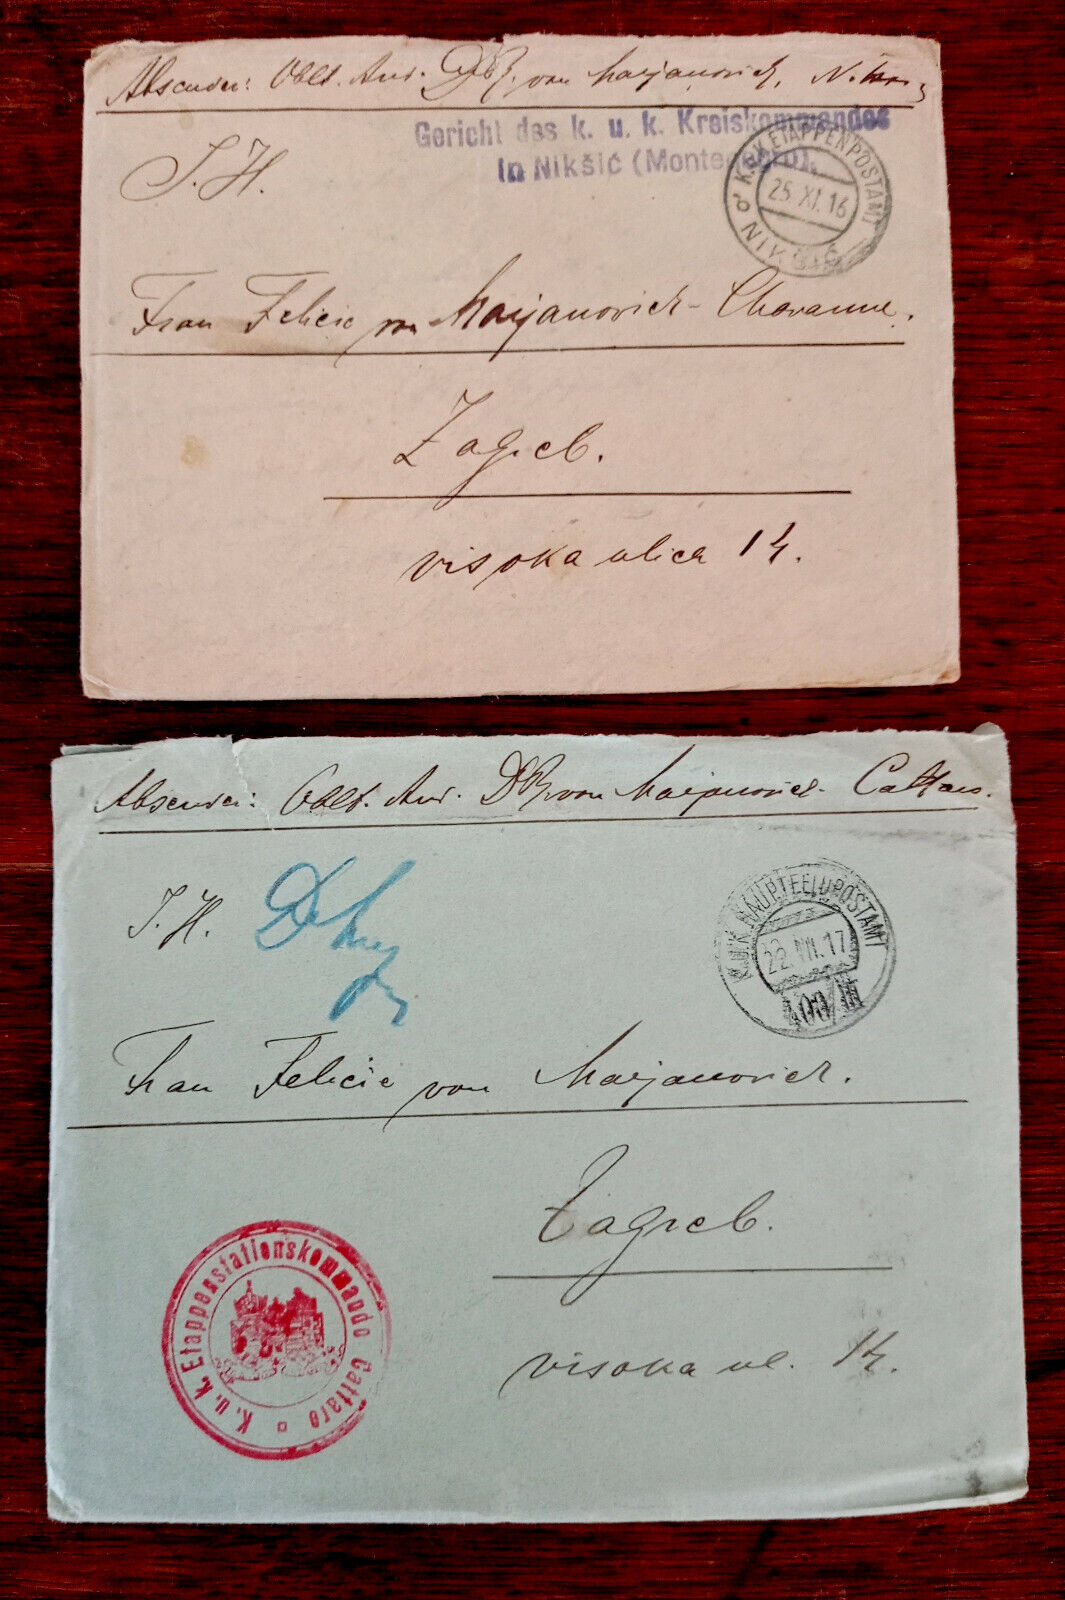 Absender: Oblt. Aud. Dr. R. von Marjanovich,
Gericht des k. u. k. Kreiskommandos
in Nikšić (Montenegro).
K.U.K. ETAPPENPOSTAMT
25. XI. 16
NIKŠIĆ
S. H.
Frau Felicie von Marjanovich-Chavanne.
Zagreb.
visoka ulica 14.
Absender: Oblt. Aud. Dr. R. von Marjanovich Cattaro.
S. H.
K.U.K. HAUPTFELDPOSTAMT
22. VII. 17
400/III
Frau Felicie von Marjanovich.
Zagreb.
visoka ul. 14.
K. u. k. Etappenstationskommando Cattaro